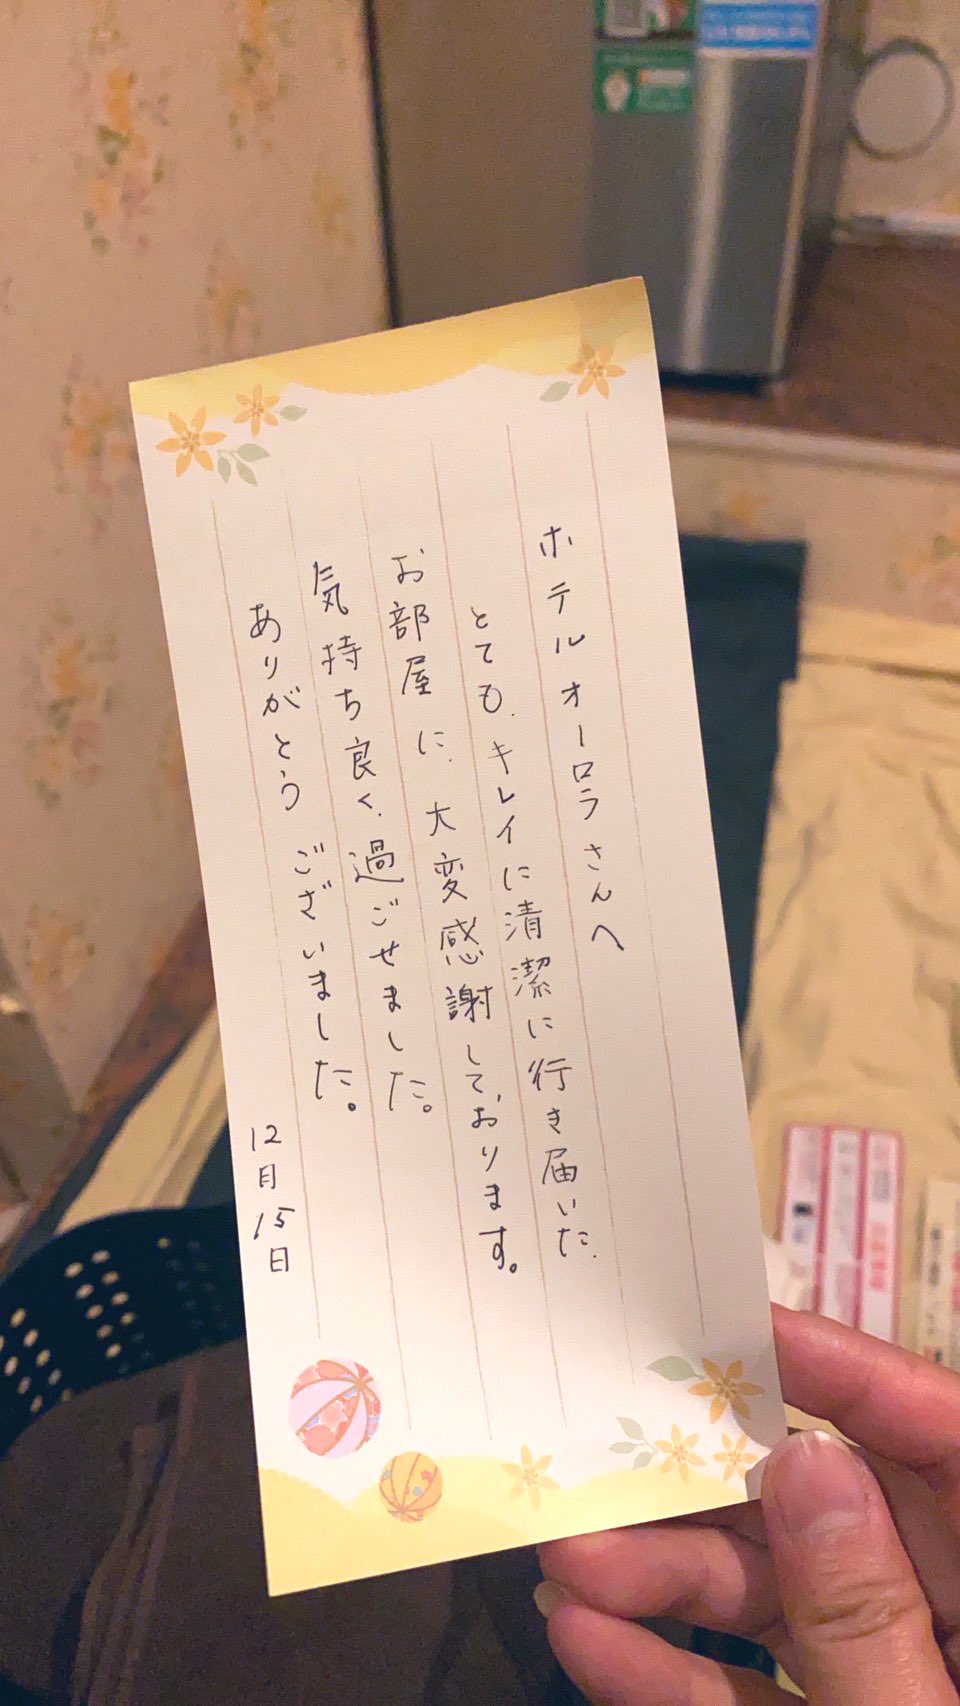 ホテルオーロラさんへ
とても、キレイに清潔に行き届いた、
お部屋に、大変感謝しております。
気持ち良く、過ごせました。
ありがとうございました。
12月15日